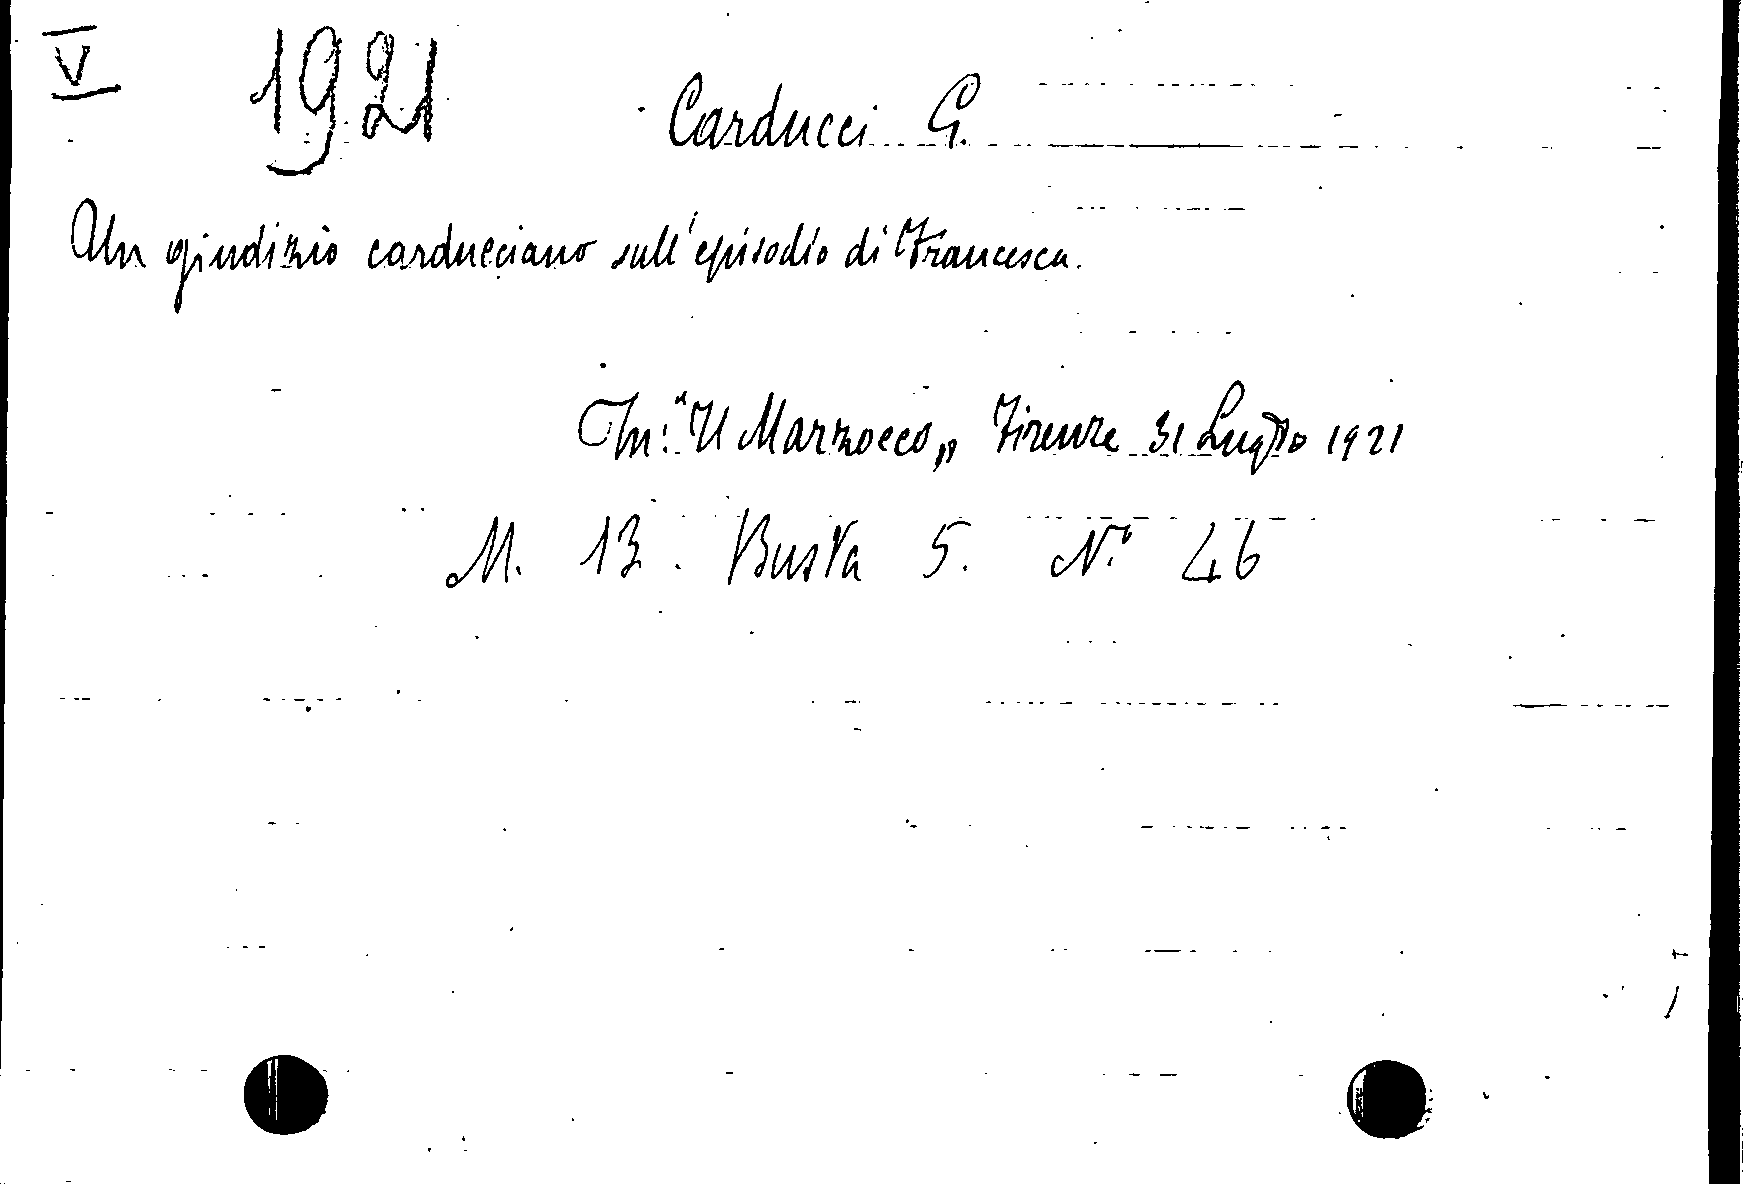 V 1921 Carducci G.
Un giudizio carducciano sull'episodio di Francesca.
In: "Il Marzocco„ Firenze 31 Luglio 1921
M. 13. Busta 5. N.° 46